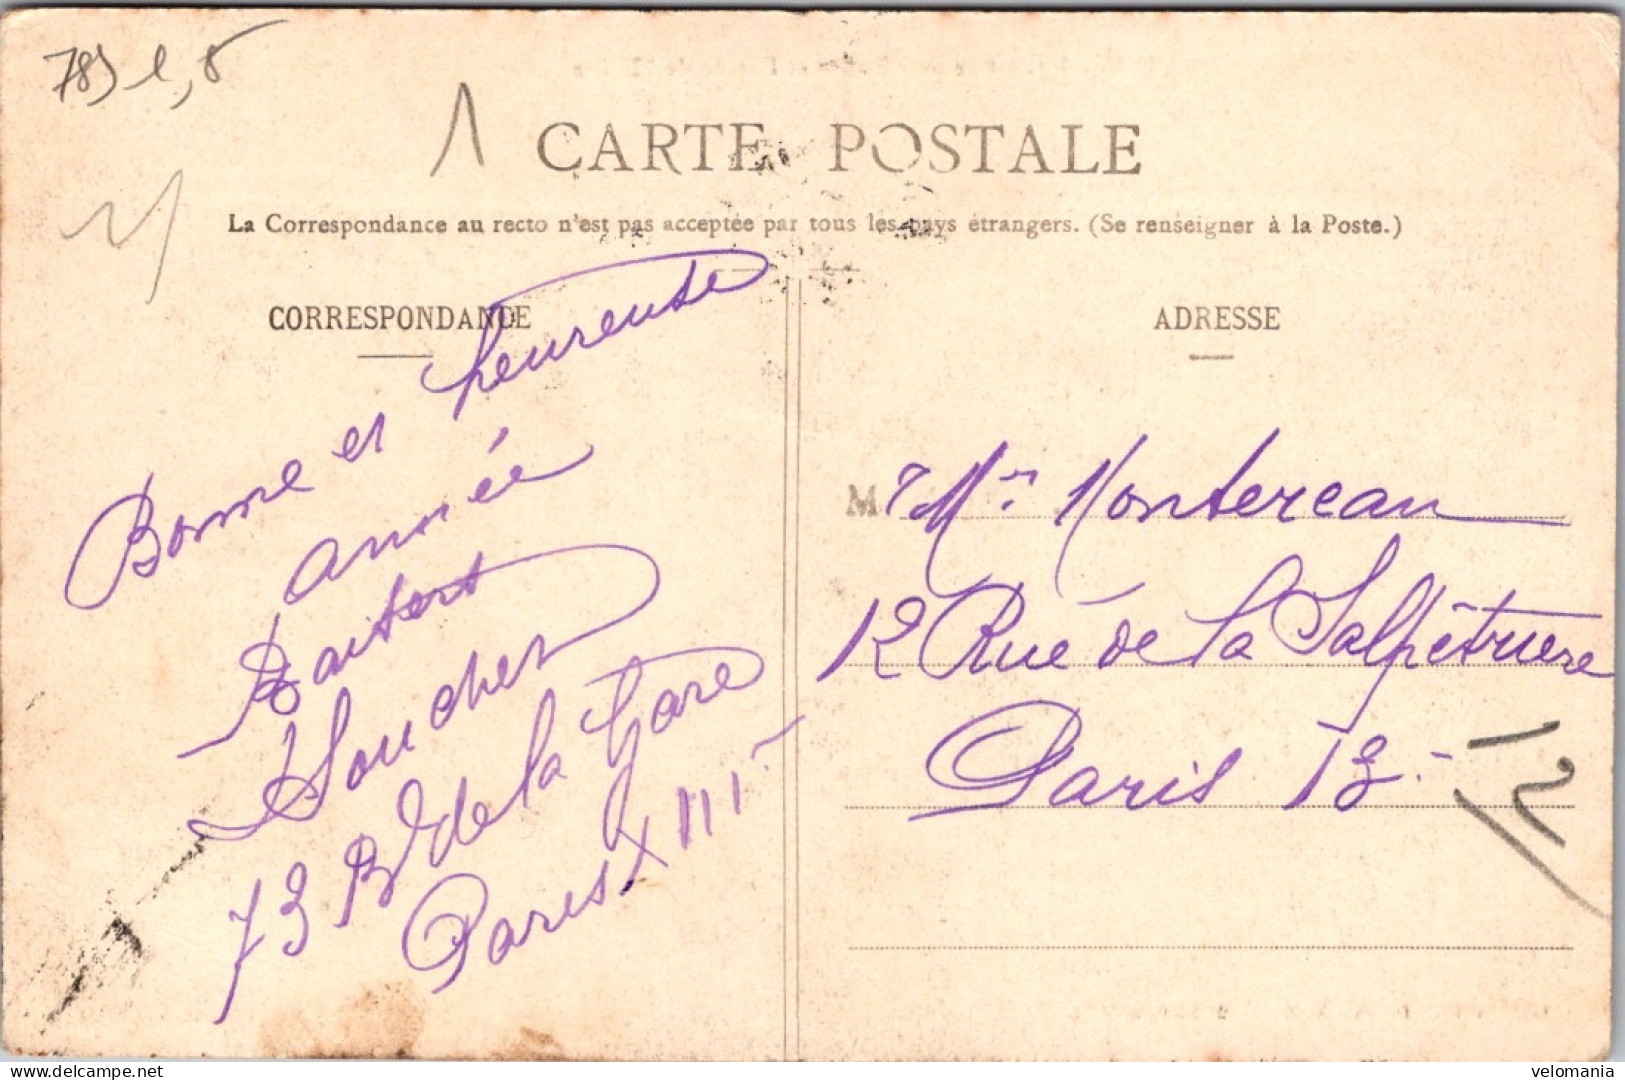 1
CARTE POSTALE
La Correspondance au recto n'est pas acceptée par tous les pays étrangers. (Se renseigner à la Poste.)
CORRESPONDANCE
Bonne et heureuse
année
Souchet
73 Bd de la Gare
Paris XIII
ADRESSE
M Mr Montereau
12 Rue de la Salpêtriere
Paris 13
12
velomania